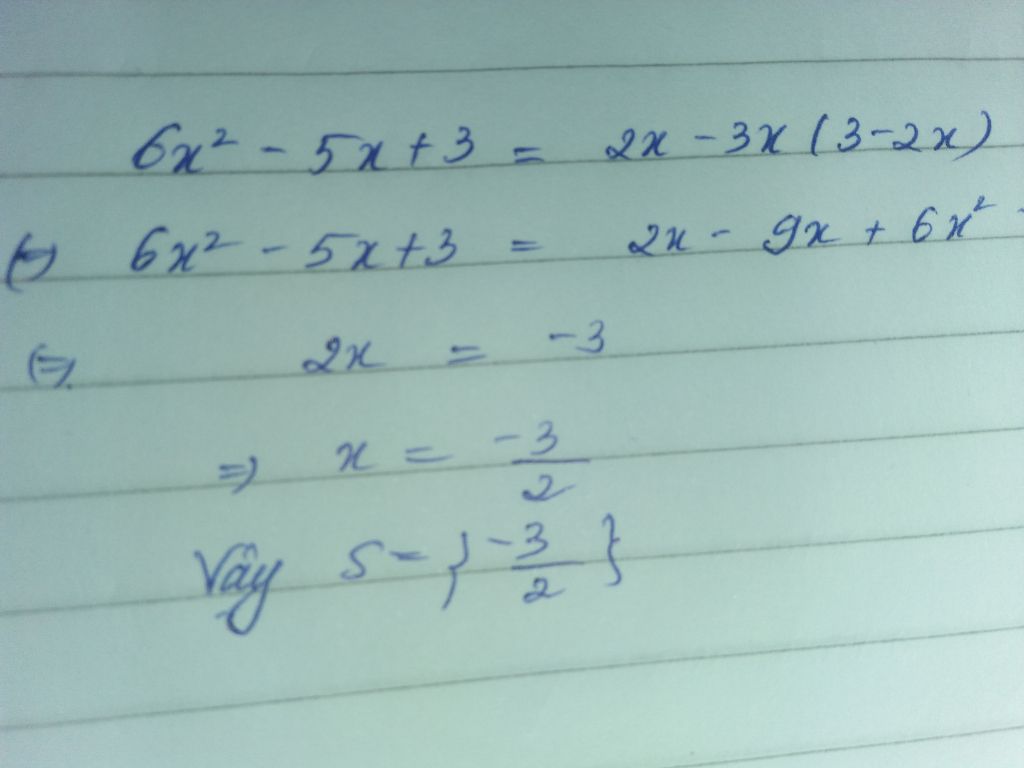 6x² - 5x + 3 = 2x - 3x (3 - 2x)
⇔ 6x² - 5x + 3 = 2x - 9x + 6x²
⇔ 2x = -3
⇒ x = -3/2
Vậy S = {-3/2}